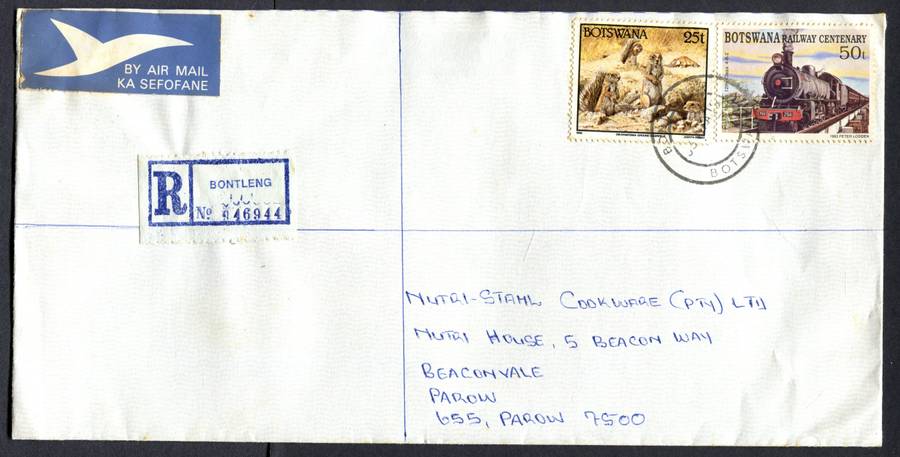 BY AIR MAIL
KA SEFOFANE
BOTSWANA 25t
BOTSWANA RAILWAY CENTENARY
50t
1993 PETER LODOEN
BOTSW
R
BONTLENG
No 946944
NUTRI-STAHL COOKWARE (PTY) LTD
NUTRI HOUSE, 5 BEACON WAY
BEACONVALE
PAROW
655, PAROW 7500